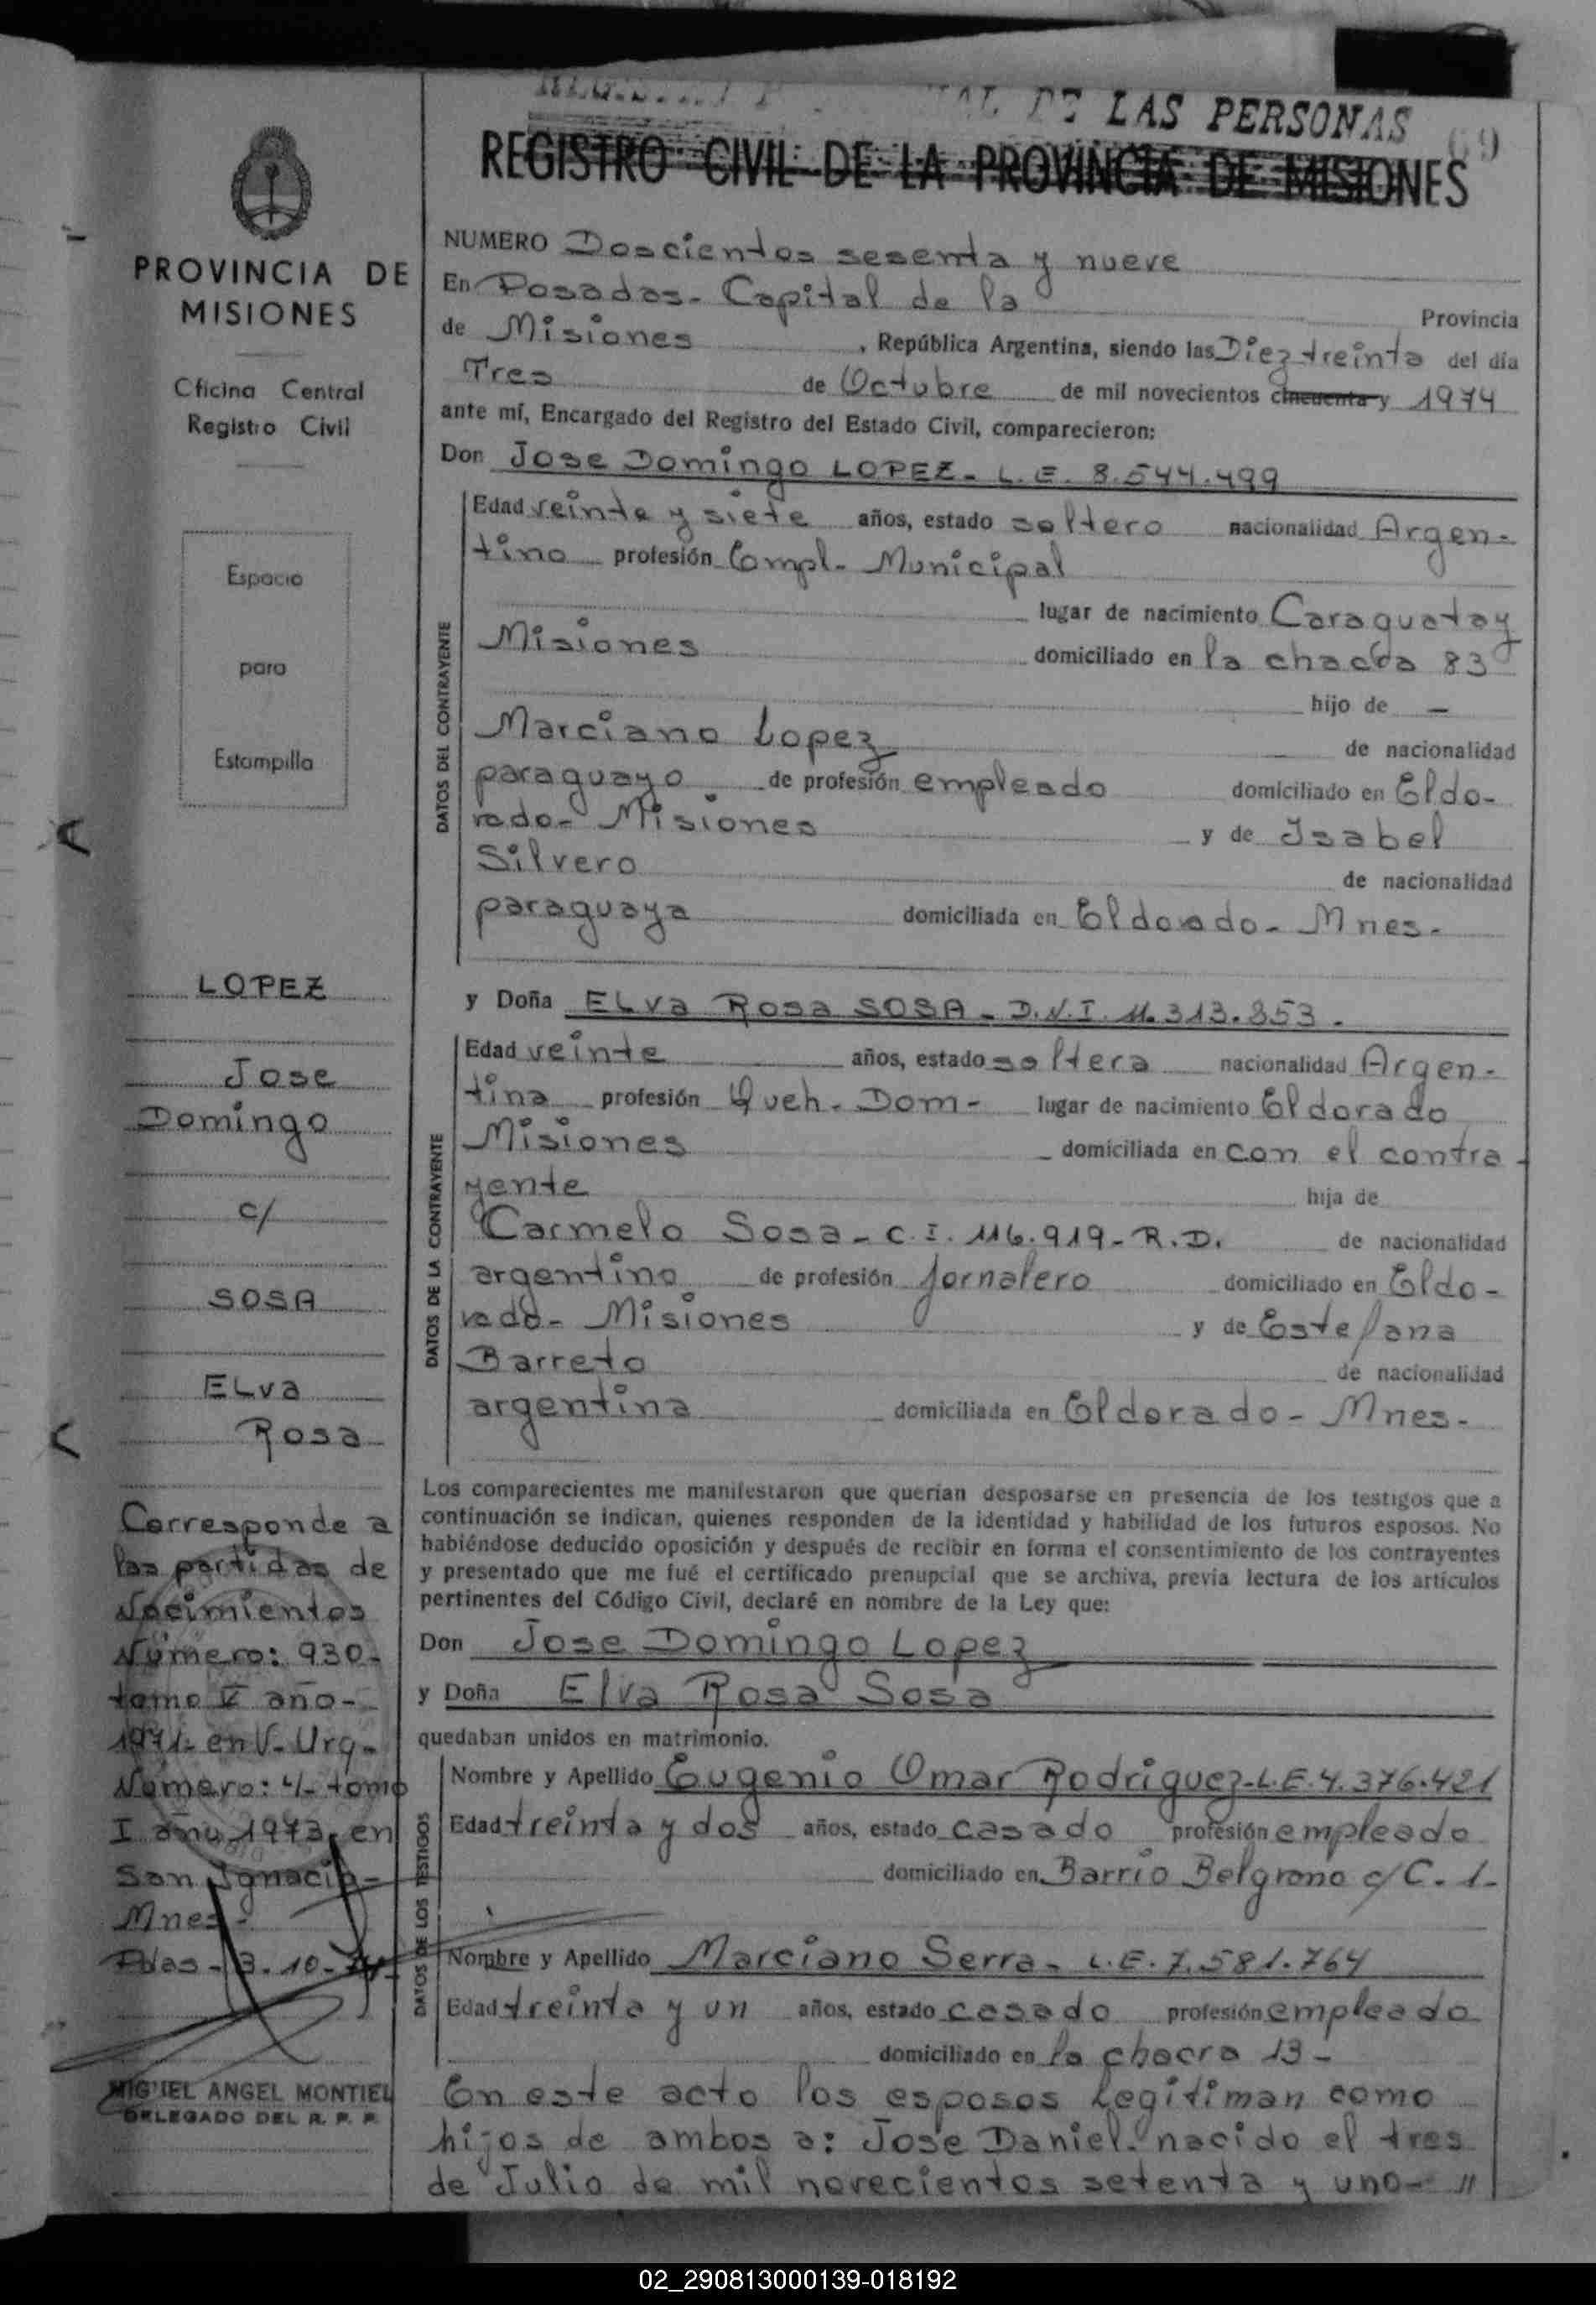 DE LAS PERSONAS
69
REGISTRO CIVIL DE LA PROVINCIA DE MISIONES
PROVINCIA DE
MISIONES
Oficina Central
Registro Civil
Espacio
para
Estampilla
LOPEZ
Jose
Domingo
c/
SOSA
ELva
Rosa
Corresponde a
las partidas de
Nacimientos
Número: 930-
tomo V año-
1971- en V- Urq-
Número: 4/- tomo
I año 1973, en
San Ignacio-
Mnes-
Pdas- 3-10-74-
MIGUEL ANGEL MONTIEL
DELEGADO DEL R. P. P.
NUMERO Doscientos sesenta y nueve
En Posadas- Capital de la Provincia
de Misiones, República Argentina, siendo las Diez treinta del día
Tres de Octubre de mil novecientos cincuenta y 1974
ante mí, Encargado del Registro del Estado Civil, comparecieron:
Don Jose Domingo LOPEZ- L.E. 8.544.499
DATOS DEL CONTRAYENTE
Edad veinte y siete años, estado soltero nacionalidad Argen-
tino profesión Empl- Municipal
lugar de nacimiento Caraguatay
Misiones domiciliado en la chacra 83
hijo de -
Marciano Lopez de nacionalidad
paraguayo de profesión empleado domiciliado en Eldo-
rado- Misiones y de Isabel
Silvero de nacionalidad
paraguaya domiciliada en Eldorado- Mnes-
y Doña ELva Rosa SOSA- D.N.I. 11.313.853-
DATOS DE LA CONTRAYENTE
Edad veinte años, estado soltera nacionalidad Argen-
tina profesión Queh- Dom- lugar de nacimiento Eldorado
Misiones domiciliada en con el contra-
yente hija de
Carmelo Sosa- C.I. 116.919- R.D. de nacionalidad
argentino de profesión jornalero domiciliado en Eldo-
rado- Misiones y de Estefana
Barreto de nacionalidad
argentina domiciliada en Eldorado- Mnes-
Los comparecientes me manifestaron que querían desposarse en presencia de los testigos que a
continuación se indican, quienes responden de la identidad y habilidad de los futuros esposos. No
habiéndose deducido oposición y después de recibir en forma el consentimiento de los contrayentes
y presentado que me fué el certificado prenupcial que se archiva, previa lectura de los artículos
pertinentes del Código Civil, declaré en nombre de la Ley que:
Don Jose Domingo Lopez
y Doña Elva Rosa Sosa
quedaban unidos en matrimonio.
DATOS DE LOS TESTIGOS
Nombre y Apellido Eugenio Omar Rodriguez-L.E.4.376.421
Edad treinta y dos años, estado casado profesión empleado
domiciliado en Barrio Belgrano c/C. 1-
Nombre y Apellido Marciano Serra- L.E.7.581.764
Edad treinta y un años, estado casado profesión empleado
domiciliado en la chacra 13-
En este acto los esposos Legitiman como
hijos de ambos a: Jose Daniel- nacido el tres
de Julio de mil novecientos setenta y uno- //
02_290813000139-018192